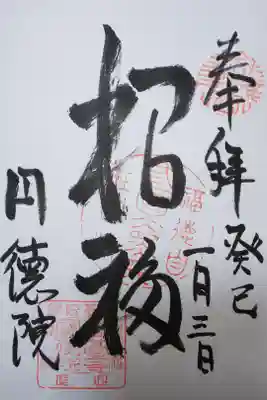 奉拝 癸巳
一月三日
招福
円徳院